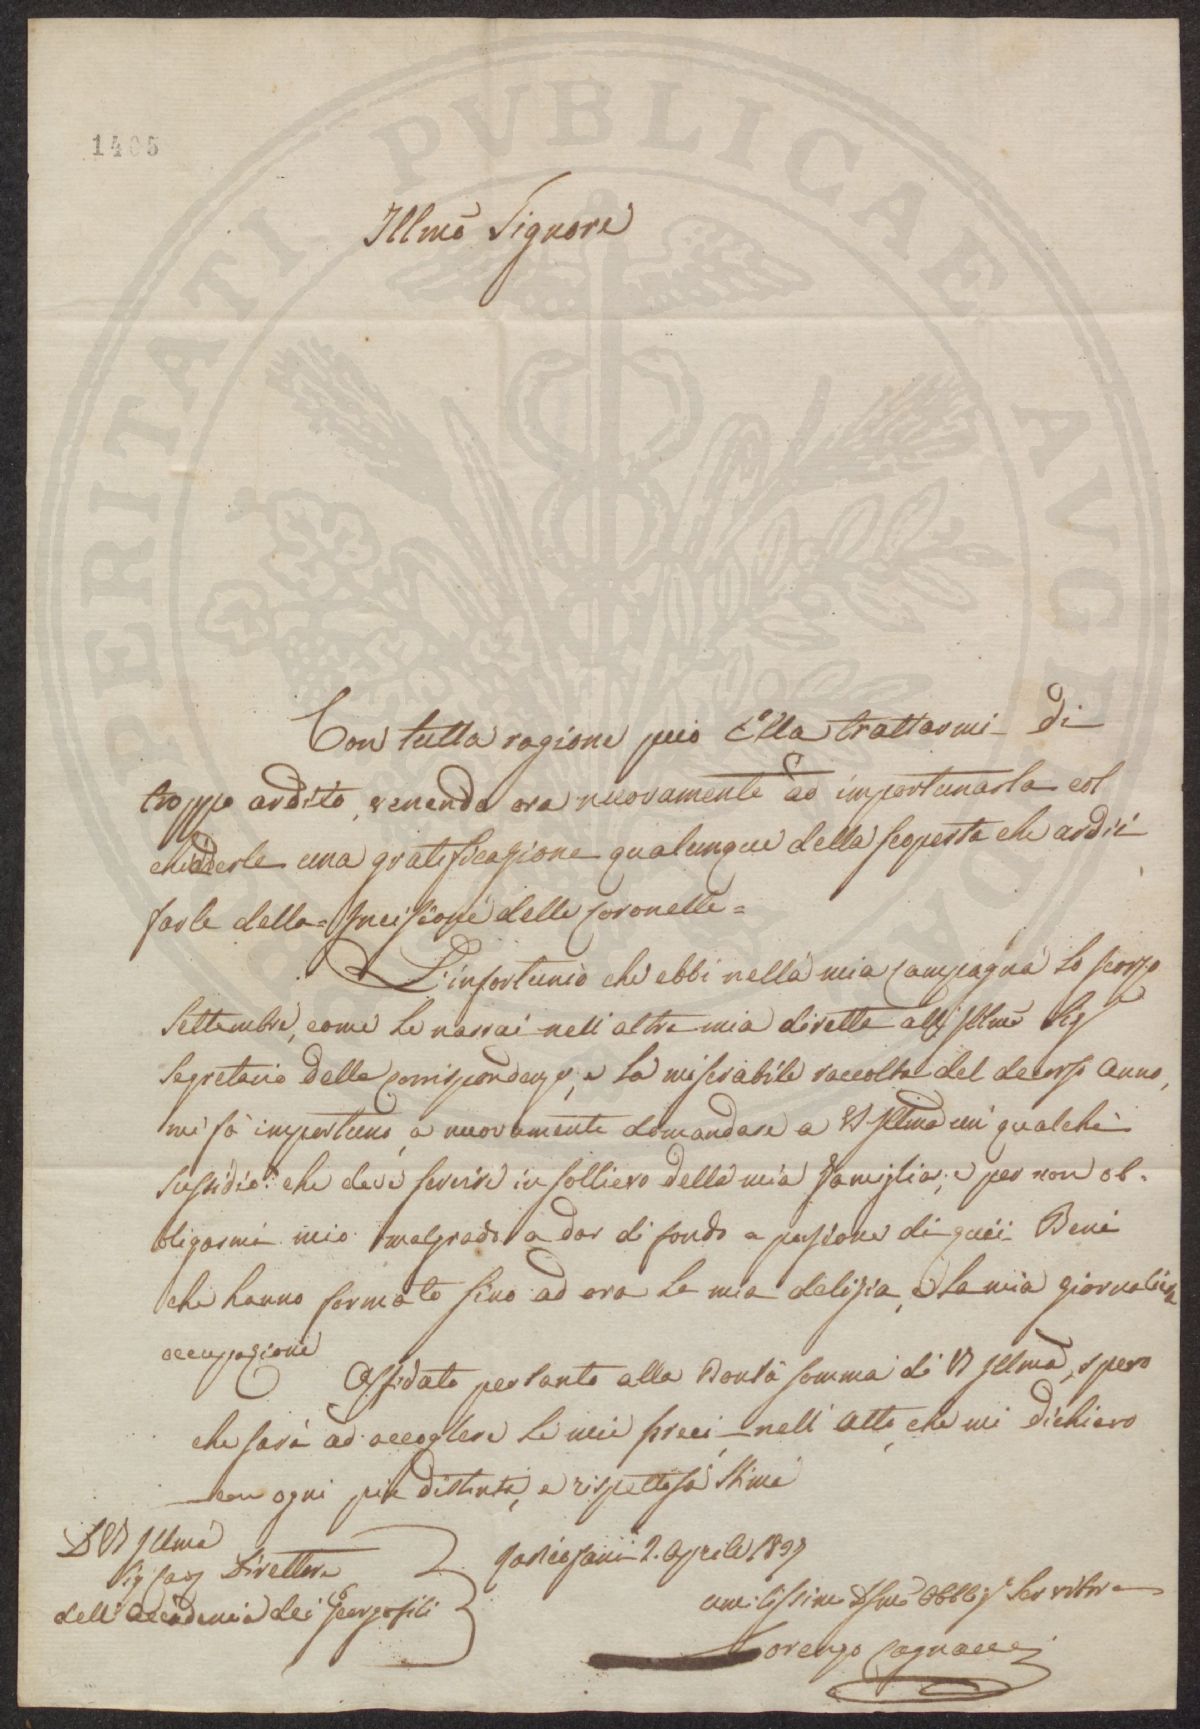 1405
PROSPERITATI PVBLICAE AVGENDAE
Illmo Signore
Con tutta ragione può Ella trattarmi di
troppo ardito, venendo ora nuovamente ad importunarla col
chiederle una gratificazione qualunque della scoperta che ardii
farle della = Incisione delle Coronelle =
L'infortunio che ebbi nella mia Campagna lo scorso
Settembre, come le narrai nell'altra mia diretta all Illmo Sigr
Segretario delle Corrispondenze, e la miserabile raccolta del decorso Anno,
mi fà importuno, a nuovamente domandare a VS Illma un qualche
sussidio che deve servire in sollievo della mia Famiglia; e per non ob-
bligarmi mio malgrado a dar di fondo a porzione di quei Beni
che hanno formato fino ad ora la mia delizia, e la mia giornaliera
occupazione
Affidato pertanto alla Bontà somma di VS Illma, spero
che sarà ad accogliere le mie preci, nell'atto, che mi dichiaro
con ogni più distinta, e rispettosa stima
D VS Illma
Sig Direttore
dell'Accademia dei Georgofili
2. Aprile
umilissimo Obblig Servitore
Lorenzo Cagnacci